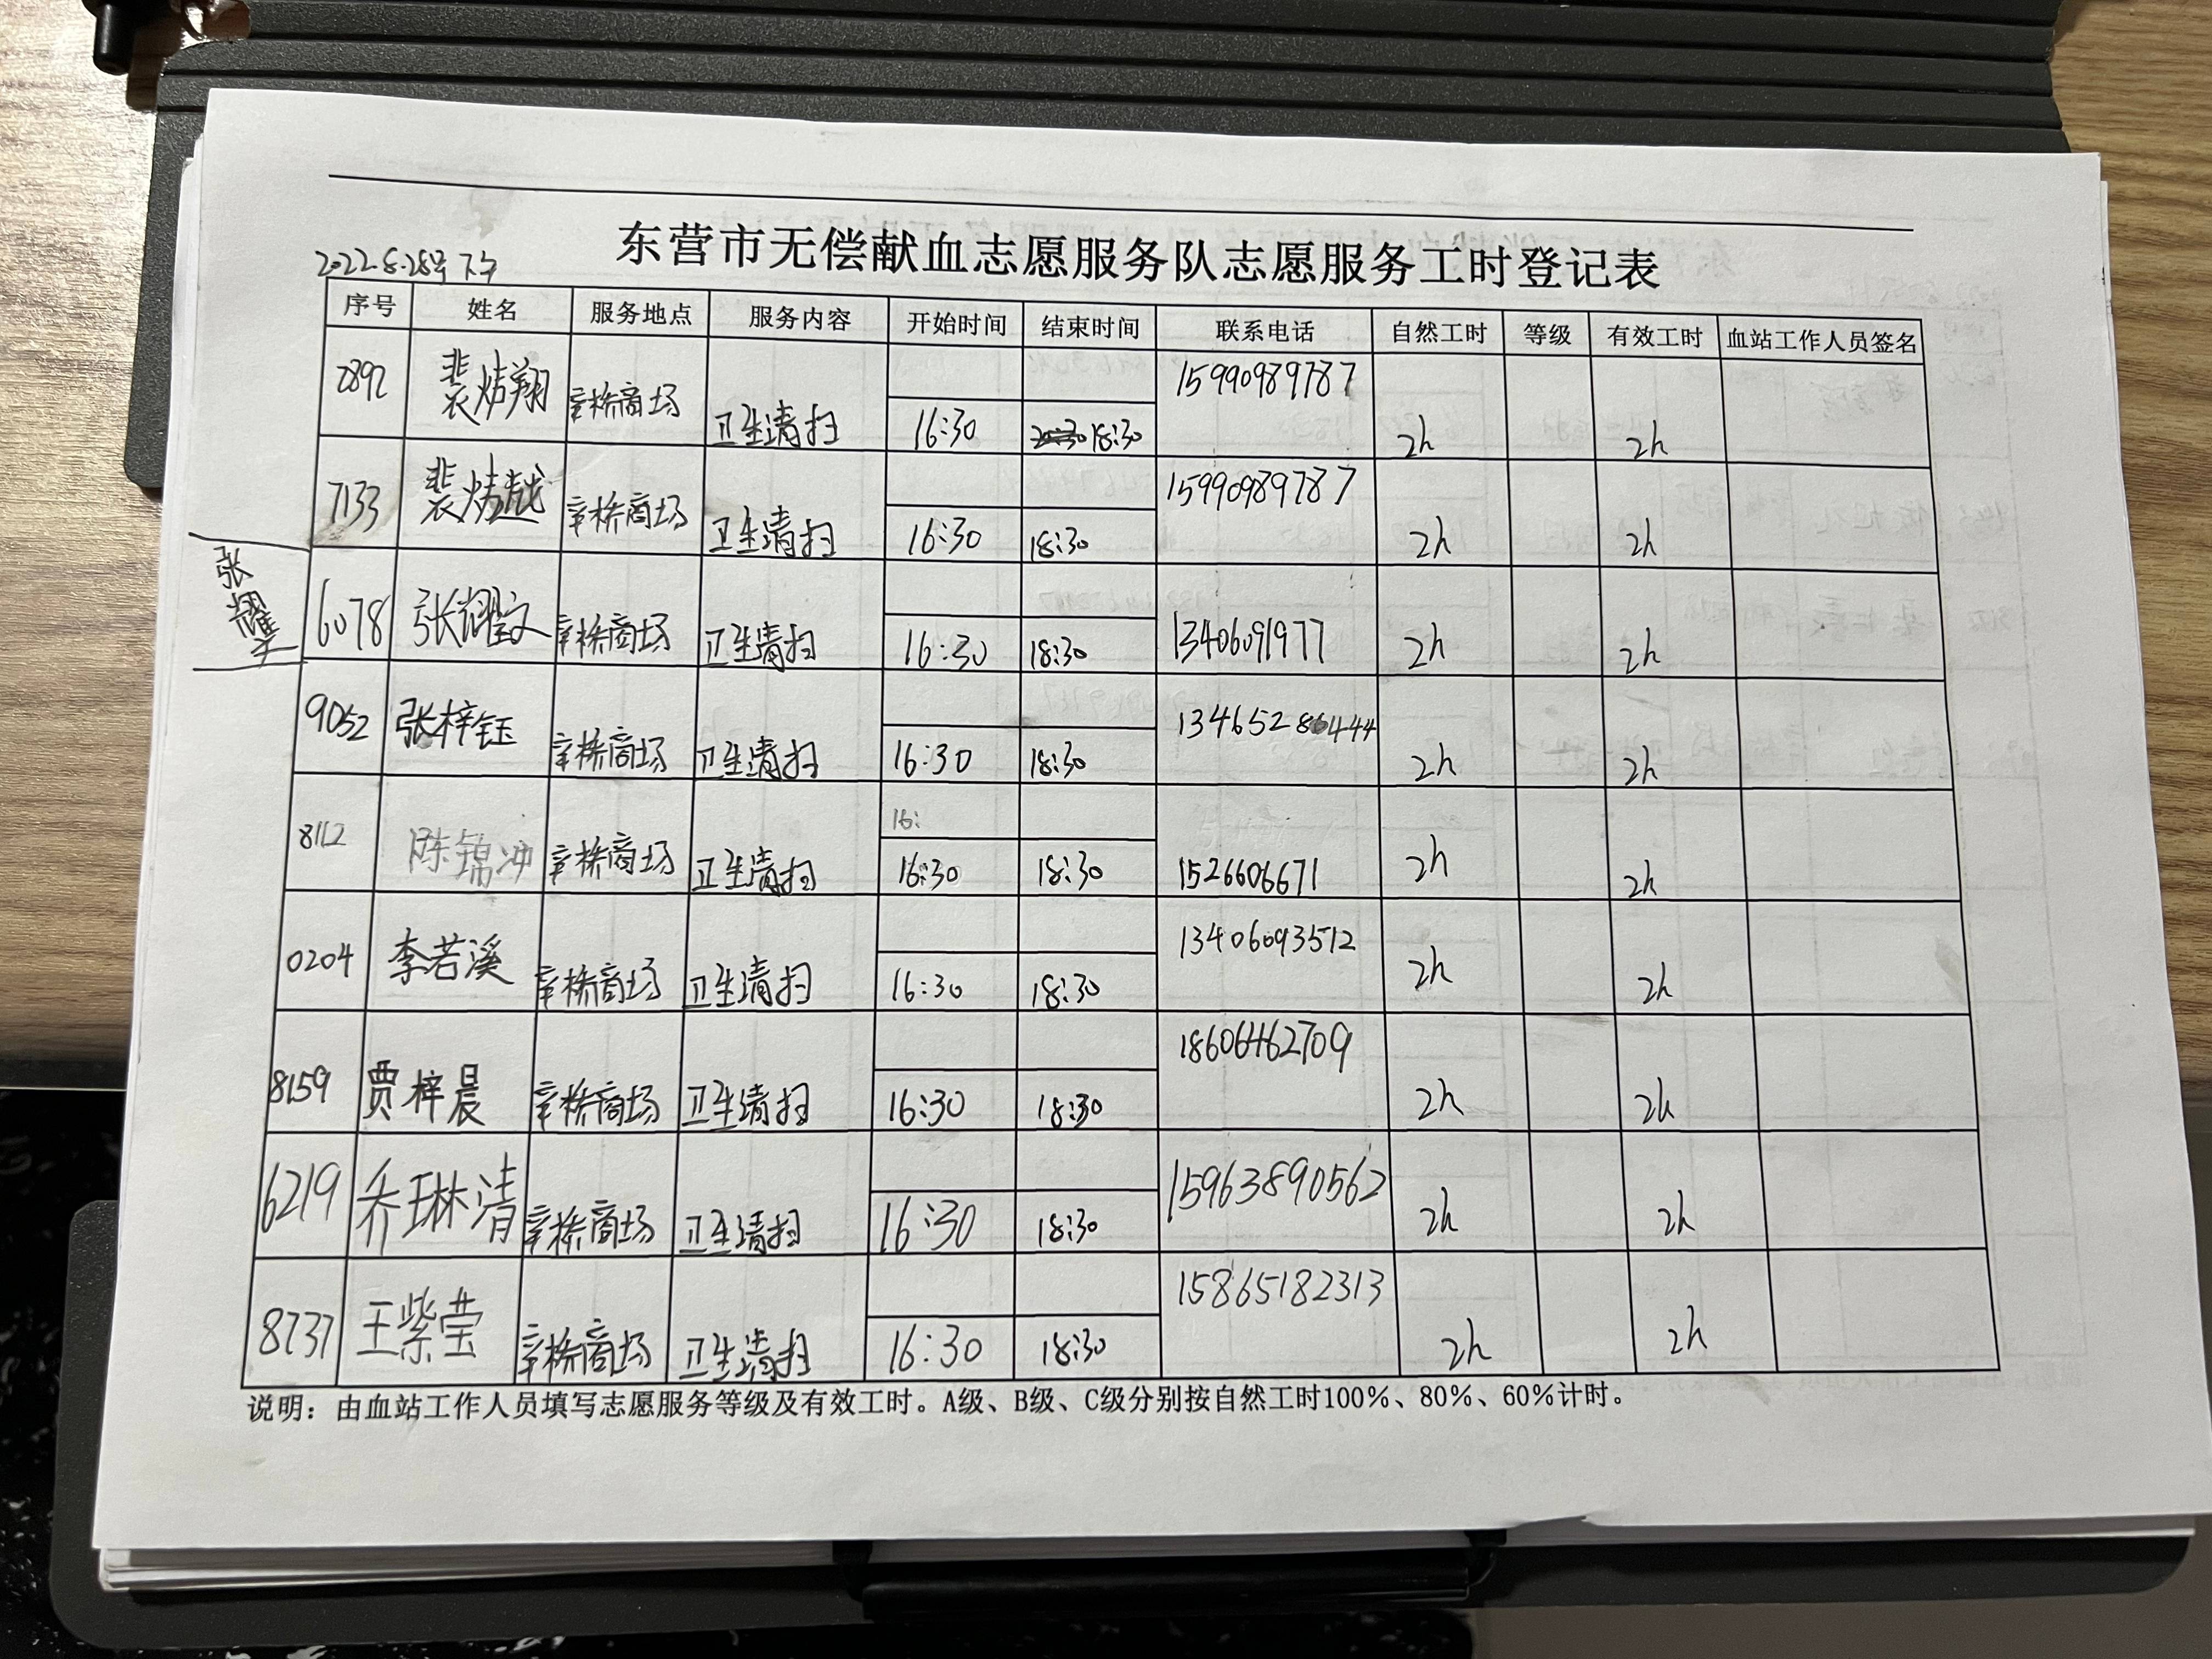 东营市无偿献血志愿服务队志愿服务工时登记表
2022.8.28号 下午
序号 姓名 服务地点 服务内容 开始时间 结束时间 联系电话 自然工时 等级 有效工时 血站工作人员签名
2892 裴炜翔 辛桥商场 卫生清扫 16:30 18:30 15990989787 2h 2h
7133 裴炜越 辛桥商场 卫生清扫 16:30 18:30 15990989787 2h 2h
张耀
6078 张耀文 辛桥商场 卫生清扫 16:30 18:30 13406091977 2h 2h
9052 张梓钰 辛桥商场 卫生清扫 16:30 18:30 13465286444 2h 2h
16:
8112 陈锦冲 辛桥商场 卫生清扫 16:30 18:30 1526606671 2h 2h
0204 李若溪 辛桥商场 卫生清扫 16:30 18:30 13406093512 2h 2h
8159 贾梓晨 辛桥商场 卫生清扫 16:30 18:30 18606462709 2h 2h
6219 乔琳清 辛桥商场 卫生清扫 16:30 18:30 15963890562 2h 2h
8737 王紫莹 辛桥商场 卫生清扫 16:30 18:30 15865182313 2h 2h
说明：由血站工作人员填写志愿服务等级及有效工时。A级、B级、C级分别按自然工时100%、80%、60%计时。